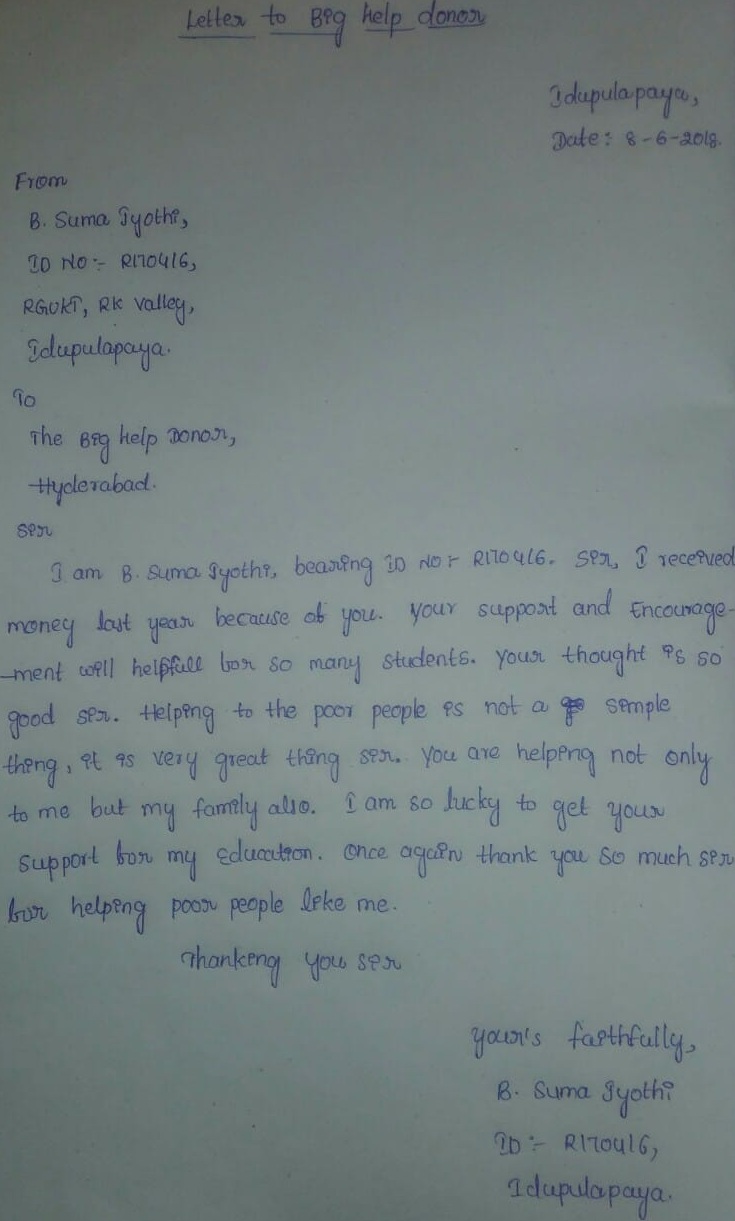 Letter to Big help donor
Idupulapaya,
Date: 8-6-2018.
From
B. Suma Jyothi,
ID NO:- R170416,
RGUKT, RK Valley,
Idupulapaya.
To
The Big help Donor,
Hyderabad.
Sir
I am B. Suma Jyothi, bearing ID NO:- R170416. Sir, I received
money last year because of you. Your support and Encourage-
-ment will helpfull for so many students. Your thought is so
good sir. Helping to the poor people is not a simple
thing, it is very great thing sir. You are helping not only
to me but my family also. I am so lucky to get your
support for my Education. Once again thank you so much sir
for helping poor people like me.
Thanking you sir
your's faithfully,
B. Suma Jyothi
ID:- R170416,
Idupulapaya.